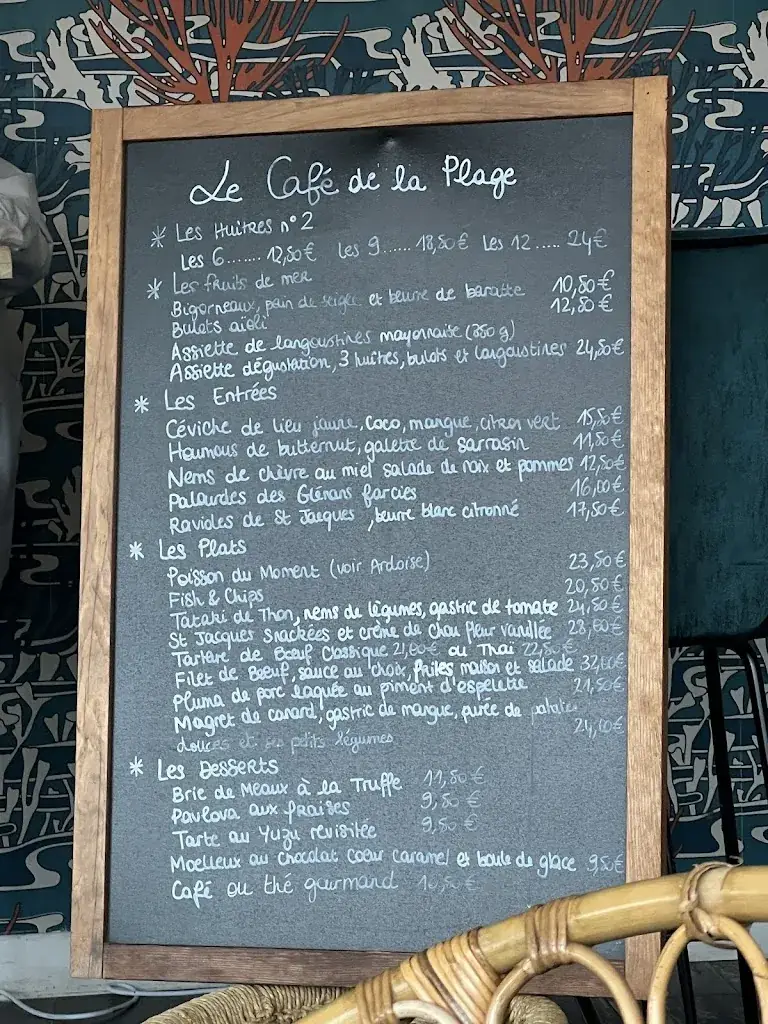 Le Café de la Plage
* Les Huîtres n°2
Les 6....... 12,50€ Les 9...... 18,50€ Les 12..... 24€
* Les fruits de mer
Bigorneaux, pain de seigle et beurre de baratte 10,50€
Bulots aïoli 12,50€
Assiette de langoustines mayonnaise (350 g)
Assiette dégustation, 3 huîtres, bulots et langoustines 24,50€
* Les Entrées
Céviche de lieu jaune, coco, mangue, citron vert 15,50€
Houmous de butternut, galette de sarrasin 11,50€
Nems de chèvre au miel salade de noix et pommes 12,50€
Palourdes des Glénans farcies 16,00€
Ravioles de St Jacques, beurre blanc citronné 17,50€
* Les Plats
Poisson du Moment (voir Ardoise) 23,50€
Fish & Chips 20,50€
Tataki de Thon, nems de légumes, gastric de tomate 24,50€
St Jacques snackées et crème de chou fleur vanillée 28,00€
Tartare de Bœuf Classique 21,00€ ou Thaï 22,50€
Filet de Bœuf, sauce au choix, frites maison et salade 32,00€
Pluma de porc laquée au piment d'espelette 21,50€
Magret de canard, gastric de mangue, purée de patates 24,00€
douces et ses petits légumes
* Les Desserts
Brie de Meaux à la Truffe 11,50€
Pavlova aux fraises 9,50€
Tarte au Yuzu revisitée 9,50€
Moelleux au chocolat cœur caramel et boule de glace 9,50€
Café ou thé gourmand 10,50€